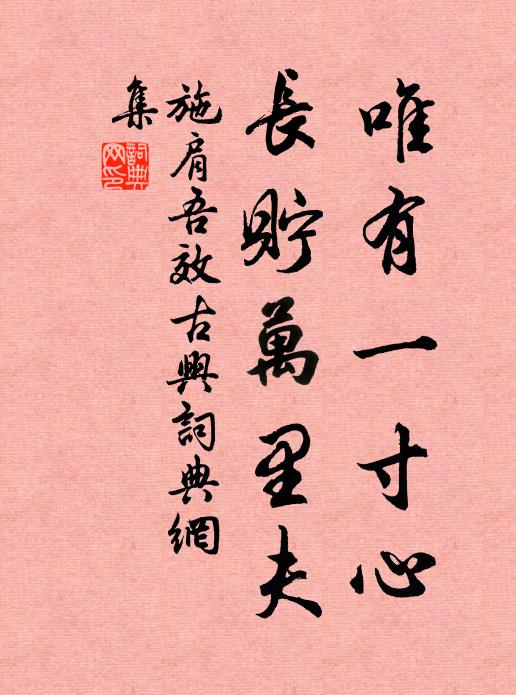 唯有一寸心
長貯萬里夫
施肩吾效古興詞典網
集
詞典
網印